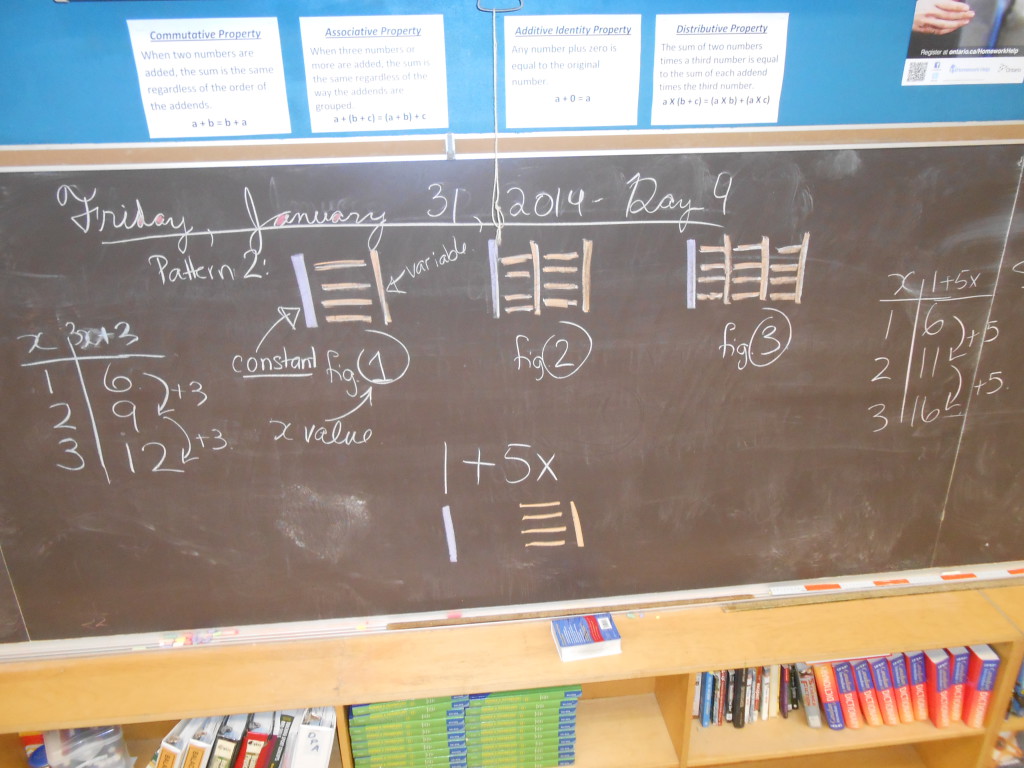 Commutative Property
When two numbers are
added, the sum is the same
regardless of the order of
the addends.
a + b = b + a
Associative Property
When three numbers or
more are added, the sum is
the same regardless of the
way the addends are
grouped.
a + (b + c) = (a + b) + c
Additive Identity Property
Any number plus zero is
equal to the original
number.
a + 0 = a
Distributive Property
The sum of two numbers
times a third number is equal
to the sum of each addend
times the third number.
a X (b + c) = (a X b) + (a X c)
Register at ontario.ca/HomeworkHelp
Friday, January 31, 2014 - Day 9
Pattern 2:
variable
constant
fig. 1
fig 2
fig. 3
x value
x 3x+3
1 6
2 9
3 12
+3
+3
1+5x
x 1+5x
1 6
2 11
3 16
+5
+5